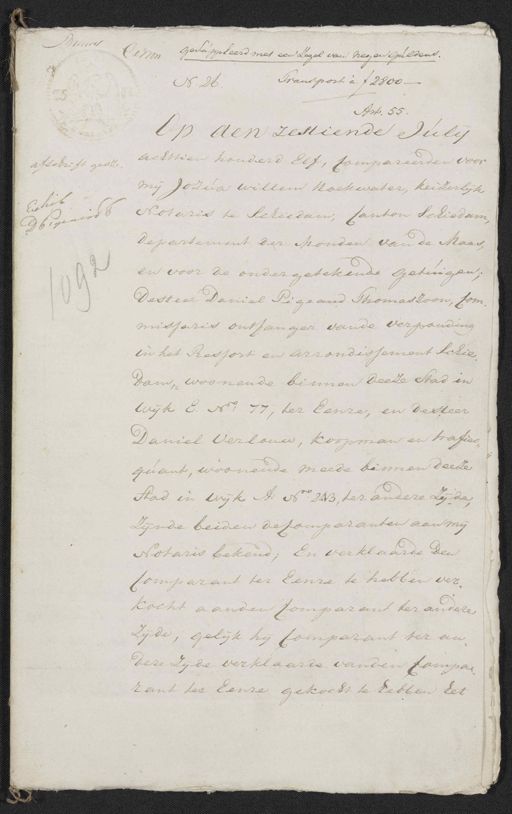 gesuppleerd met een Zegel van negen Guldens.
N. 26.
Transport à ƒ 2800.—
Art. 55.
Op den zestiende July
achttien honderd Elf, Compareerden voor
mij Jozua willem Noekwater, keizerlyk
Notaris te Schiedam, Canton Schiedam,
departement der Monden van de Maas,
en voor de ondergetekende getuigen;
Desheer Daniel Pigeaud Thomaszoon, Com-
missaris ontfanger van de verponding
in het Ressort en arrondissement Schie-
Dam, woonende binnen deeze Stad in
wyk E. No. 77, ter Eenre, en desheer
Daniel Verlouw, koopman en trafic-
quant, woonende meede binnen deeze
Stad in wyk A. No. 243, ter andere Zyde,
Zynde beiden de Comparanten aan my
Notaris bekend; En verklaarde den
Comparant ter Eenre te hebben ver-
kocht aan den Comparant ter andere
Zyde, gelyk hy Comparant ter an-
dere Zyde verklaarde van den Compa-
rant ter Eenre gekocht te hebben het
afschrift
1092